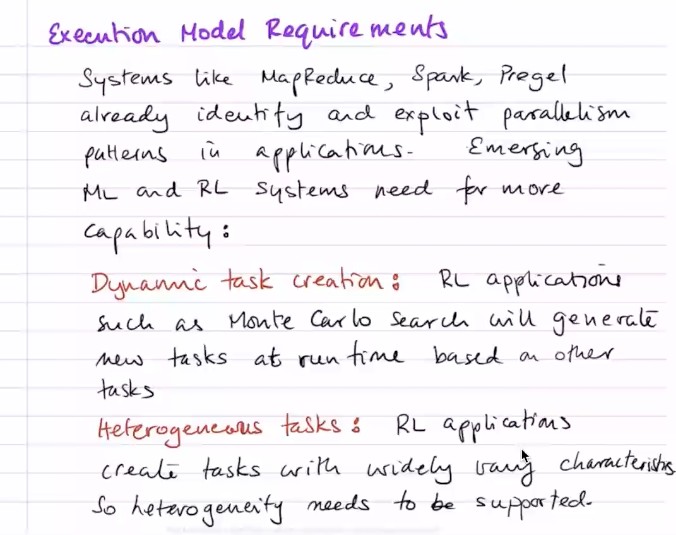 Execution Model Requirements
Systems like MapReduce, Spark, Pregel
already identify and exploit parallelism
patterns in applications. Emerging
ML and RL systems need far more
capability:
Dynamic task creation: RL applications
such as Monte Carlo search will generate
new tasks at run time based on other
tasks
Heterogeneous tasks: RL applications
create tasks with widely vary characteristics
So heterogeneity needs to be supported.